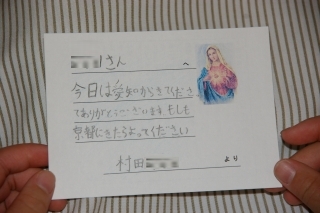 さん へ
今日は愛知からきてくださ
てありがとうございます もしも
京都にきたらよってください
村田 より